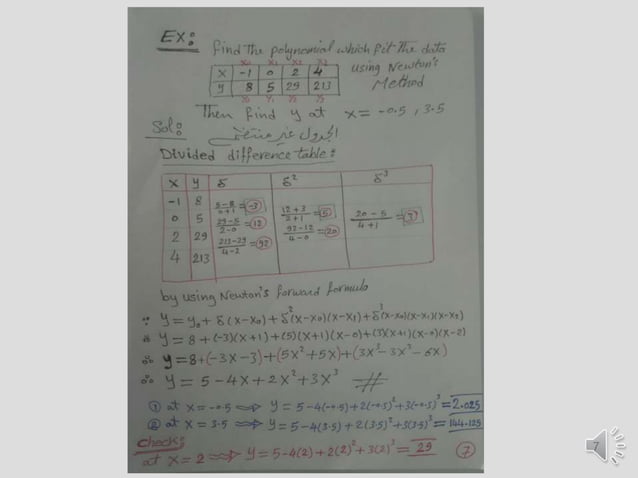 Ex: find the polynomial which fit the data
using Newton's
Method
x₀ x₁ x₂ x₃
X -1 0 2 4
y 8 5 29 213
y₀ y₁ y₂ y₃
Then find y at x = -0.5, 3.5
Sol: الجدول غير منتظم
Divided difference table:
x y δ δ² δ³
-1 8 5-8/0+1 = -3 12+3/2+1 = 5 20-5/4+1 = 3
0 5 29-5/2-0 = 12 92-12/4-0 = 20
2 29 213-29/4-2 = 92
4 213
by using Newton's forward formula
∵ y = y₀ + δ(x-x₀) + δ²(x-x₀)(x-x₁) + δ³(x-x₀)(x-x₁)(x-x₂)
∴ y = 8 + (-3)(x+1) + (5)(x+1)(x-0) + (3)(x+1)(x-0)(x-2)
∴ y = 8 + (-3x-3) + (5x²+5x) + (3x³-3x²-6x)
∴ y = 5 - 4x + 2x² + 3x³ #
① at x = -0.5 ⟹ y = 5-4(-0.5)+2(-0.5)²+3(-0.5)³ = 2.025
② at x = 3.5 ⟹ y = 5-4(3.5)+2(3.5)²+3(3.5)³ = 144.125
Check:
at x = 2 ⟹ y = 5-4(2)+2(2)²+3(2)³ = 29 ⑦
7